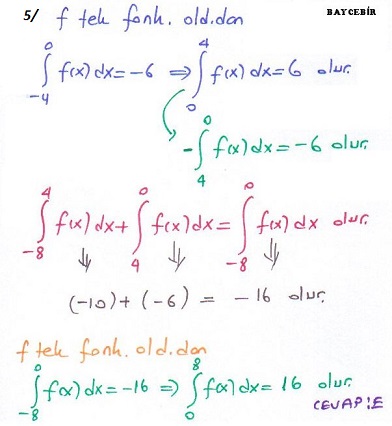 5/ f tek fonk. old.dan BAYCEBİR
∫_{-4}^{0} f(x) dx = -6 ⇒ ∫_{0}^{4} f(x) dx = 6 olur.
-∫_{4}^{0} f(x) dx = -6 olur.
∫_{-8}^{4} f(x) dx + ∫_{4}^{0} f(x) dx = ∫_{-8}^{0} f(x) dx olur.
(-10) + (-6) = -16 olur.
f tek fonk. old.dan
∫_{-8}^{0} f(x) dx = -16 ⇒ ∫_{0}^{8} f(x) dx = 16 olur.
CEVAP: E